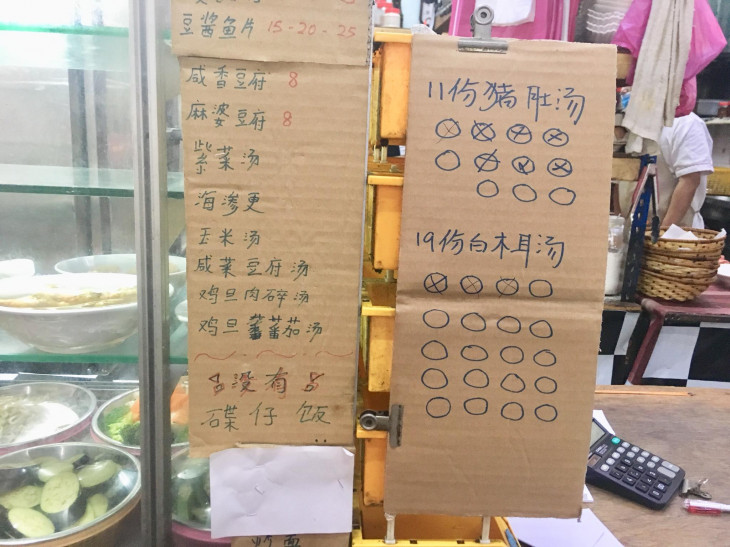 豆酱鱼片 15-20-25
咸香豆府 8
麻婆豆府 8
紫菜汤
海渗更
玉米汤
咸菜豆府汤
鸡旦肉碎汤
鸡旦蕃茄汤
没有
碟仔饭
11份猪肚汤
19份白木耳汤